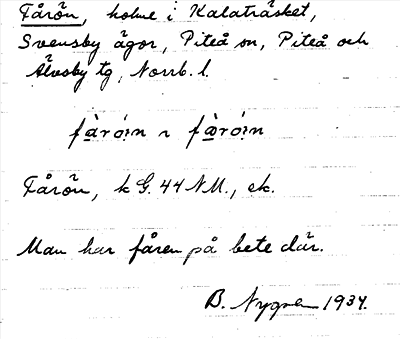 Fårön, holme i Kalaträsket,
Svensby ägor, Piteå sn, Piteå och
Älvsby tg, Norrb. l.
fàrö́ın ~ fàrö́ın
Fårön, k G. 44 NM., ek.
Man har fåren på bete där.
B. Nygren 1934.